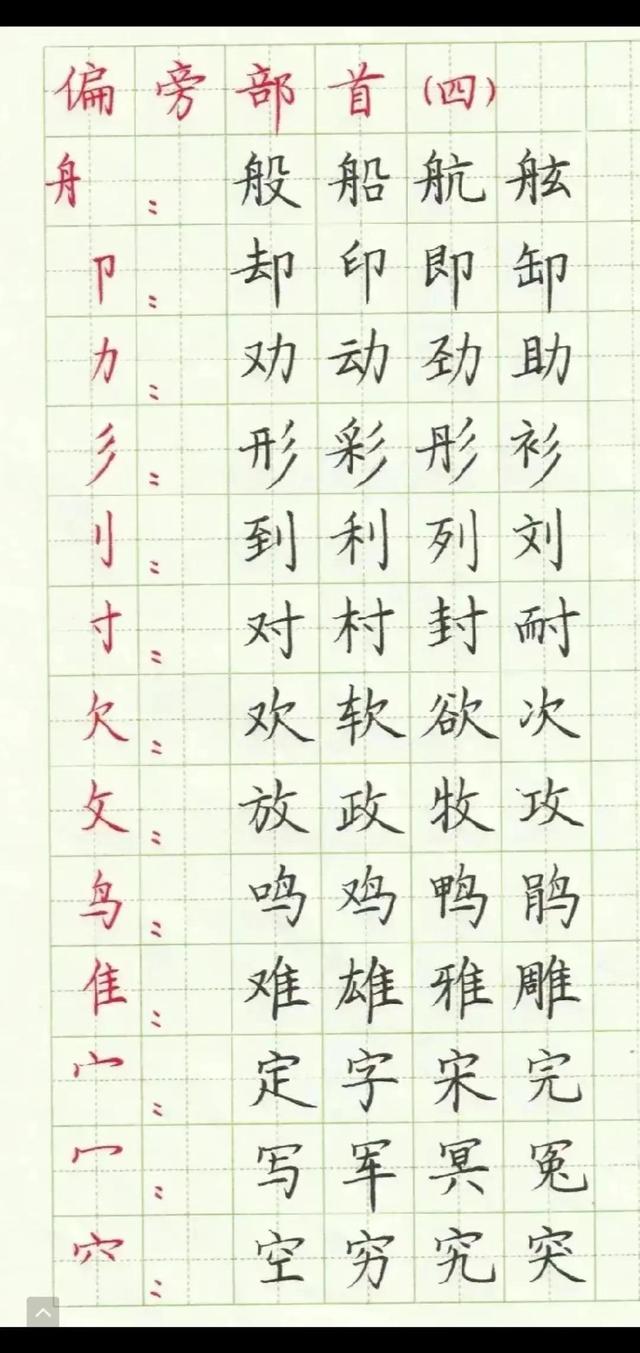 偏旁部首(四)
舟：般船航舷
卩：却印即卸
力：劝动劲助
彡：形彩彤衫
刂：到利列刘
寸：对村封耐
欠：欢软欲次
攵：放政牧攻
鸟：鸣鸡鸭鹃
隹：难雄雅雕
宀：定字宋完
冖：写军冥冤
穴：空穷究突